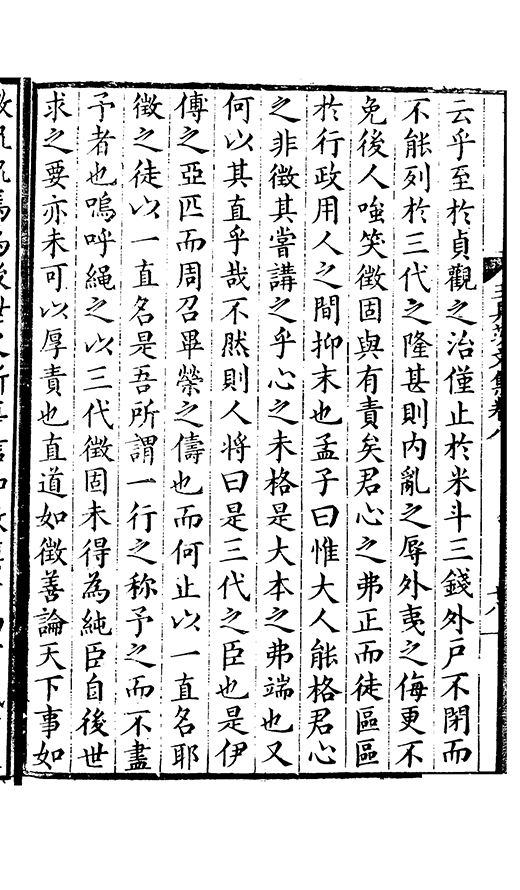 云乎至於貞觀之治僅止於米斗三錢外戶不閉而
不能列於三代之隆甚則內亂之辱外夷之侮更不
免後人嗤笑徵固與有責矣君心之弗正而徒區區
於行政用人之間抑末也孟子曰惟大人能格君心
之非徵其嘗講之乎心之未格是大本之弗端也又
何以其直乎哉不然則人將曰是三代之臣也是伊
傅之亞匹而周召畢榮之儔也而何止以一直名耶
徵之徒以一直名是吾所謂一行之称予之而不盡
予者也嗚呼繩之以三代徵固未得為純臣自後世
求之要亦未可以厚責也直道如徵善論天下事如